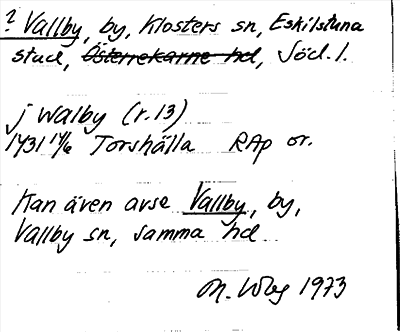 ? Vallby, by, Klosters sn, Eskilstuna
stad, Österrekarne hd, Södl.
j Walby (r.13)
1431 14/6 Torshälla RAp or.
Kan även avse Vallby, by,
Vallby sn, samma hd
1973